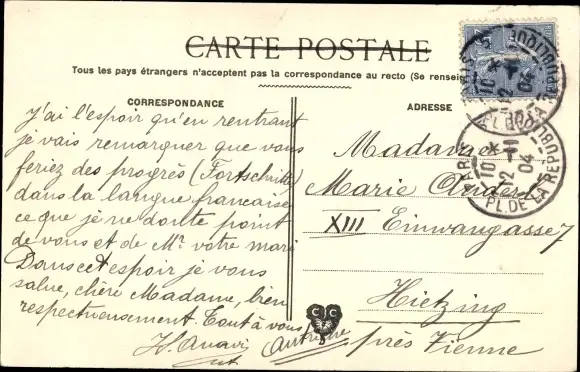 CARTE POSTALE
Tous les pays étrangers n'acceptent pas la correspondance au recto (Se renseig
CORRESPONDANCE
J'ai l'espoir qu'en rentrant
je vais remarquer que vous
feriez des progrès (Fortschritte)
dans la langue francaise
ce que je ne doute point
de vous et de Mr votre mari
Dans cet espoir je vous
salue, chère Madame, bien
respectueusement. Tout à vous
ADRESSE
Madame
Marie
XIII Einwanggasse 7
Hietzing
près Vienne
Autriche
PARIS
10 * 2 -11 04
PL. DE LA REPUBLIQUE
PARIS
10 * 2 -11 04
PL. DE LA REPUBLIQUE
C C